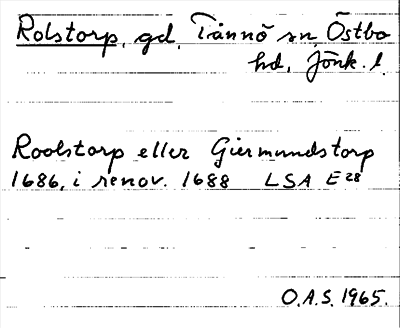 Rolstorp, gd, Tånnö sn, Östbo
hd, Jönk. l.
Roolstorp eller Giermundstorp
1686, i renov. 1688 LSA E28
O.A.S. 1965.